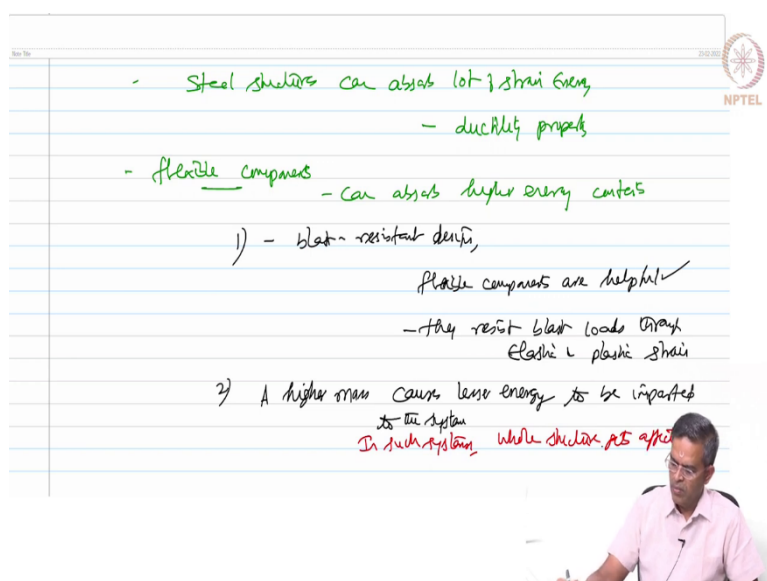 Note Title
23-02-2022
NPTEL
- Steel structures can absorb lot of strain energy
- ductility property
- flexible components
- can absorb higher energy contents
1) - blast-resistant design,
flexible components are helpful ✓
- they resist blast loads through
elastic & plastic strain
2) A higher mass causes lesser energy to be imparted
to the system
In such systems, whole structure gets